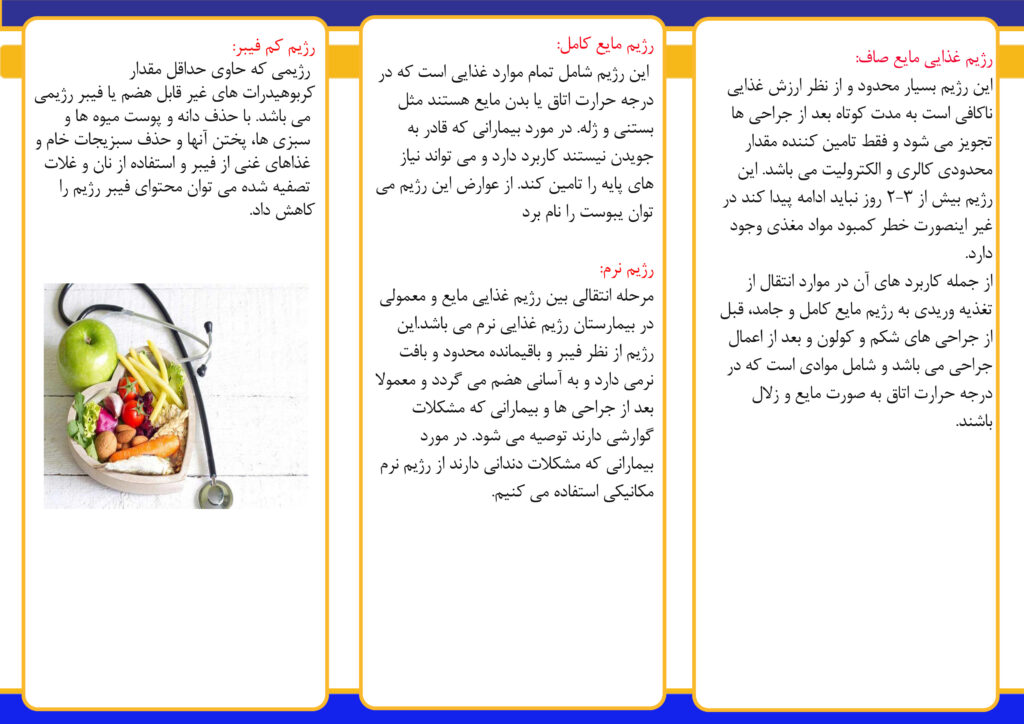 رژیم غذایی مایع صاف:
این رژیم بسیار محدود و از نظر ارزش غذایی
ناکافی است به مدت کوتاه بعد از جراحی ها
تجویز می شود و فقط تامین کننده مقدار
محدودی کالری و الکترولیت می باشد. این
رژیم بیش از ۳-۲ روز نباید ادامه پیدا کند در
غیر اینصورت خطر کمبود مواد مغذی وجود
دارد.
از جمله کاربرد های آن در موارد انتقال از
تغذیه وریدی به رژیم مایع کامل و جامد، قبل
از جراحی های شکم و کولون و بعد از اعمال
جراحی می باشد و شامل موادی است که در
درجه حرارت اتاق به صورت مایع و زلال
باشند.
رژیم مایع کامل:
این رژیم شامل تمام موارد غذایی است که در
درجه حرارت اتاق یا بدن مایع هستند مثل
بستنی و ژله. در مورد بیمارانی که قادر به
جویدن نیستند کاربرد دارد و می تواند نیاز
های پایه را تامین کند. از عوارض این رژیم می
توان یبوست را نام برد
رژیم نرم:
مرحله انتقالی بین رژیم غذایی مایع و معمولی
در بیمارستان رژیم غذایی نرم می باشد.این
رژیم از نظر فیبر و باقیمانده محدود و بافت
نرمی دارد و به آسانی هضم می گردد و معمولا
بعد از جراحی ها و بیمارانی که مشکلات
گوارشی دارند توصیه می شود. در مورد
بیمارانی که مشکلات دندانی دارند از رژیم نرم
مکانیکی استفاده می کنیم.
رژیم کم فیبر:
رژیمی که حاوی حداقل مقدار
کربوهیدرات های غیر قابل هضم یا فیبر رژیمی
می باشد. با حذف دانه و پوست میوه ها و
سبزی ها، پختن آنها و حذف سبزیجات خام و
غذاهای غنی از فیبر و استفاده از نان و غلات
تصفیه شده می توان محتوای فیبر رژیم را
کاهش داد.